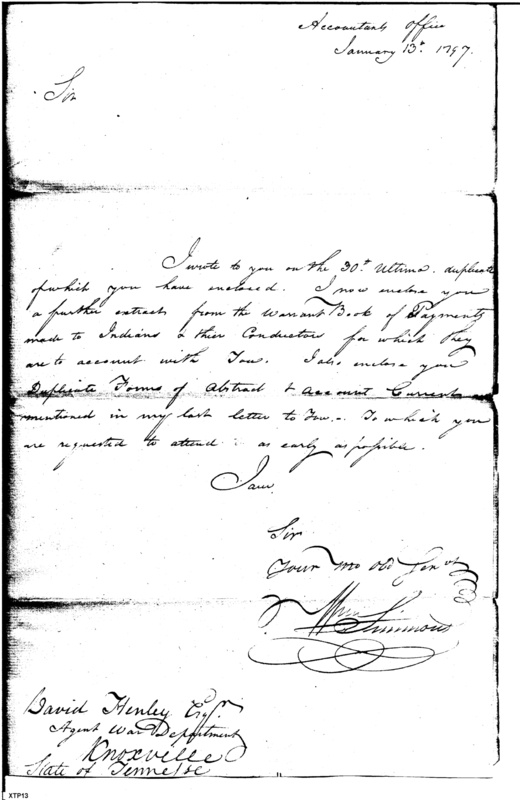 Accountants Office
January 13th. 1797.
Sir
I wrote to you on the 30th. Ultima. duplicate
of which you have enclosed. I now enclose you
a further extract from the Warrant Book of Payments
made to Indians & thier Conductors for which they
are to account with You. I also enclose you
Duplicate Forms of Abstract & Account Current as
mentioned in my last letter to You.. To which you
are requested to attend as early as possible.
I am
Sir
Your Mo Obd Servt
Wm Simmons
David Henley Esqr.
Agent War Department
Knoxville
State of Tennesse
XTP13